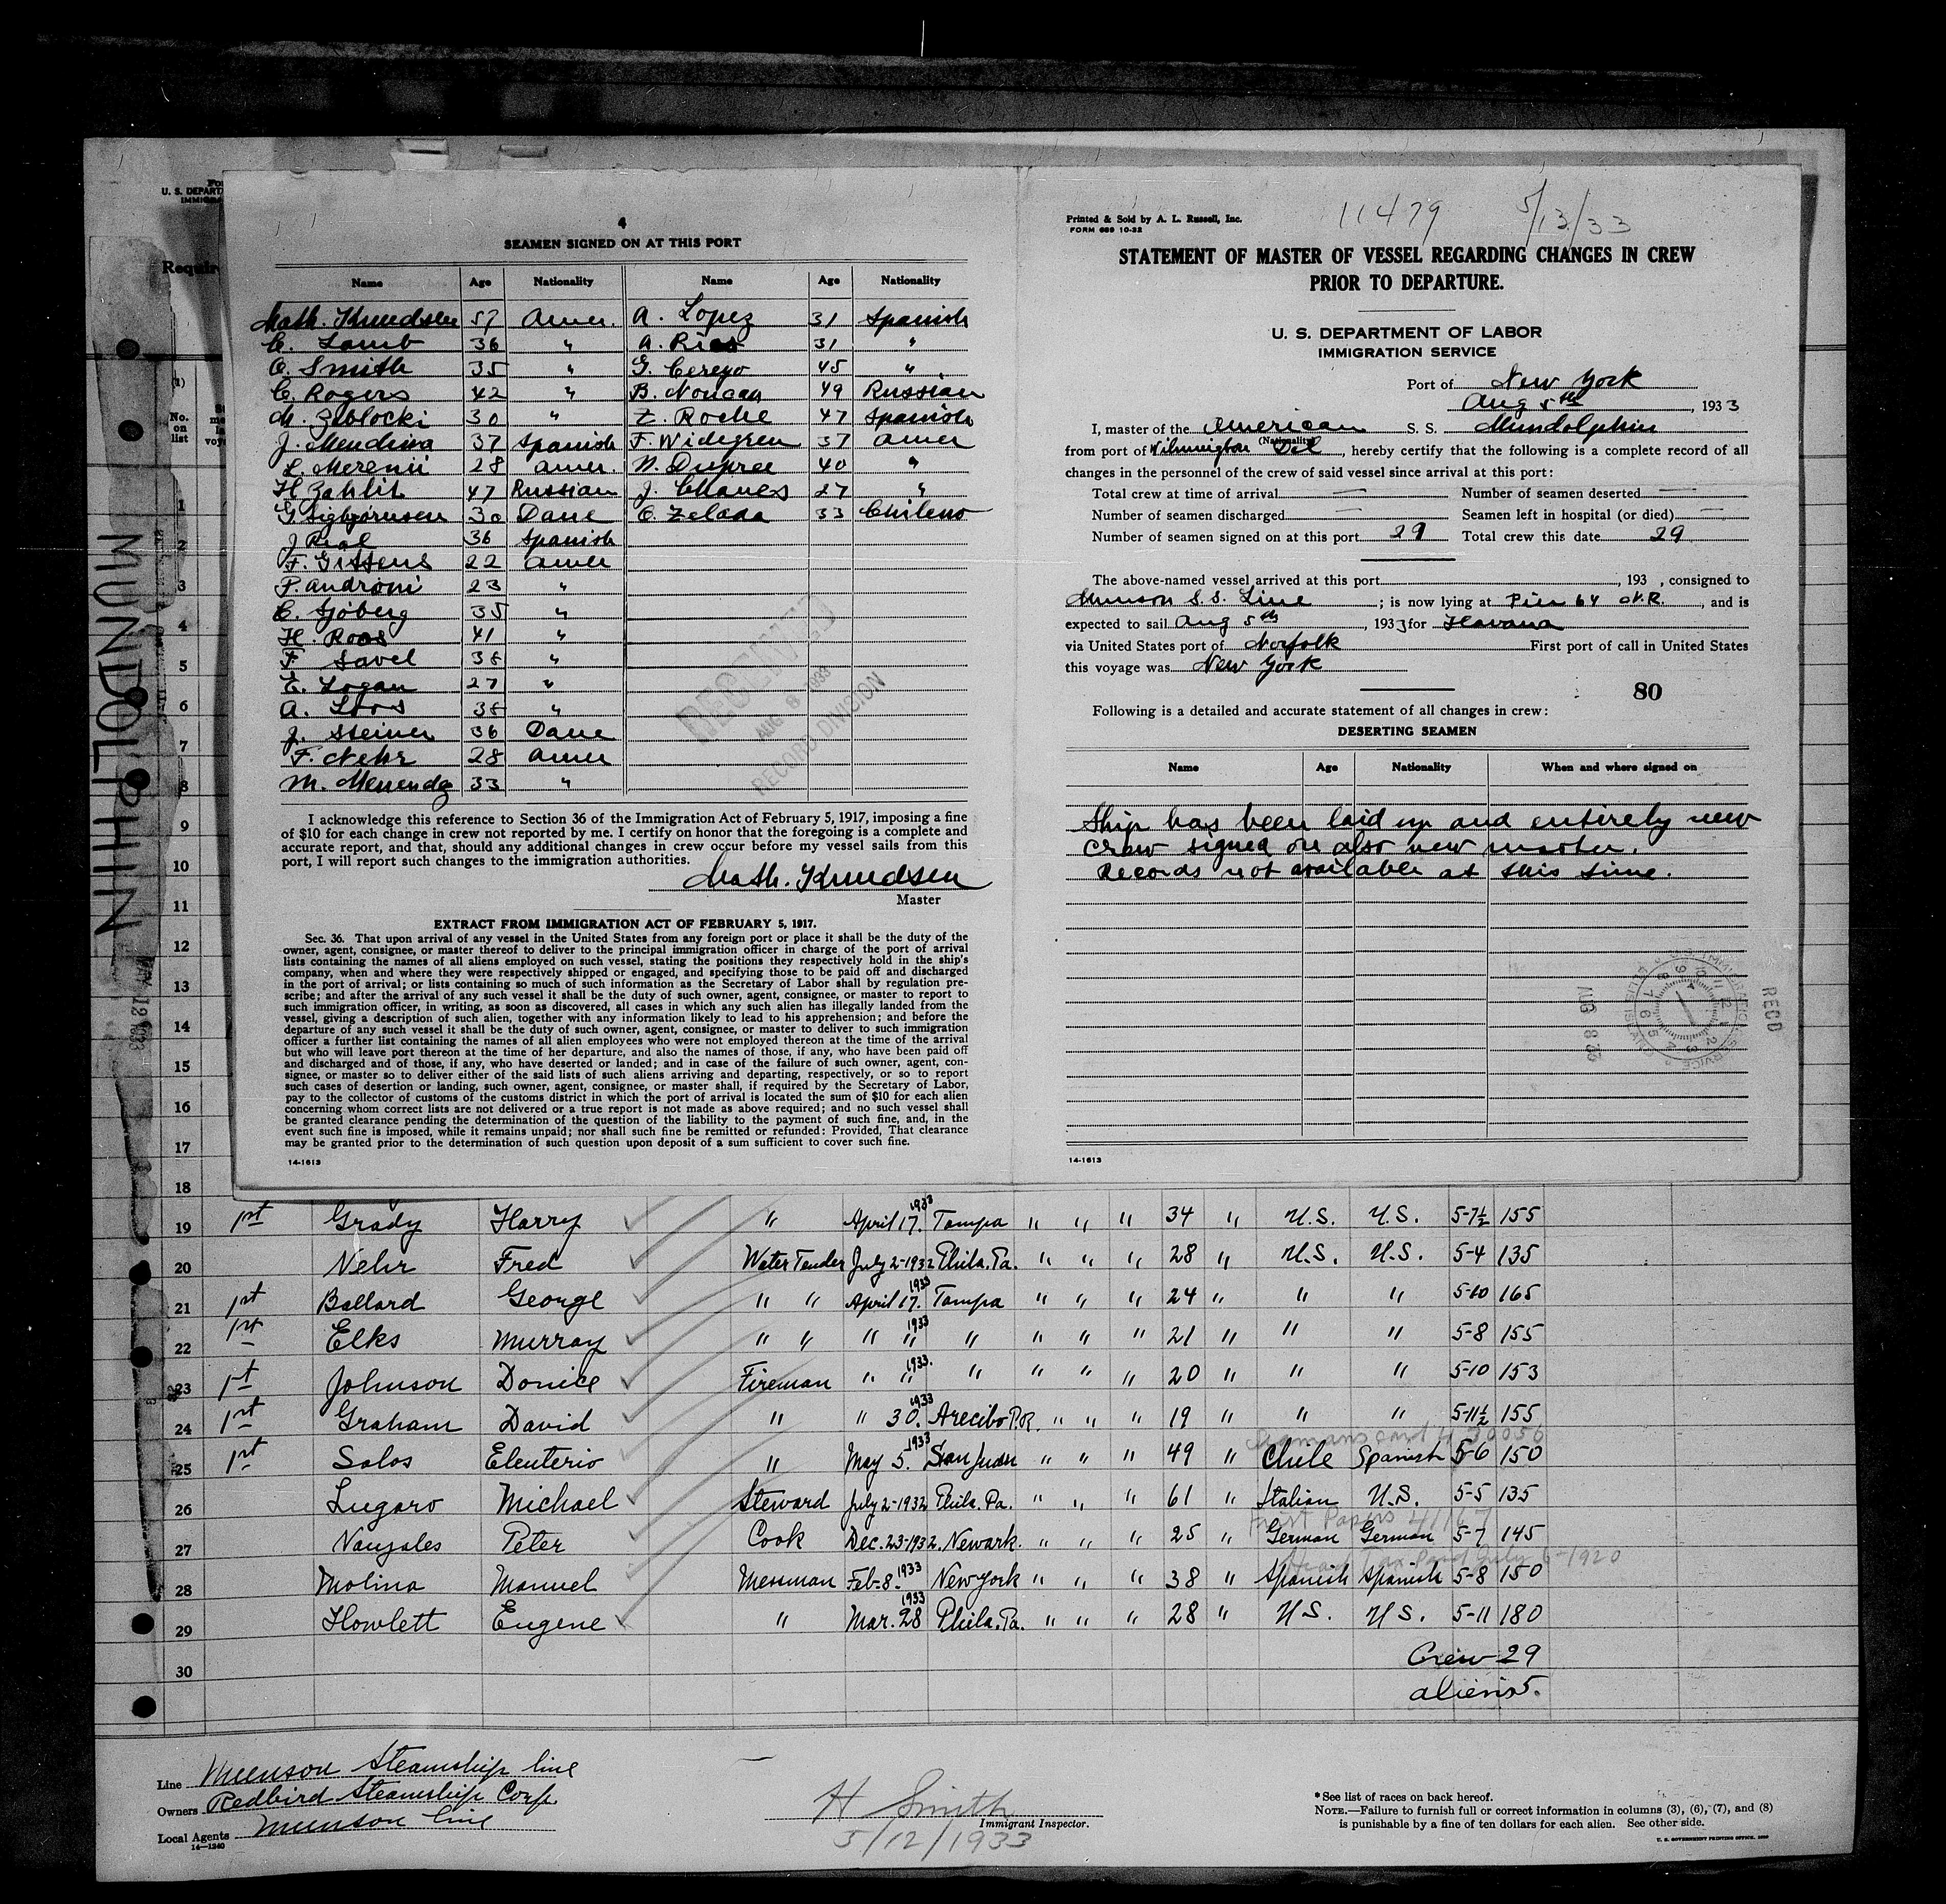 MUNDOLPHIN
U. S. DEPART
IMMIGRA
Require
(1)
No. on list
4
SEAMEN SIGNED ON AT THIS PORT
Name Age Nationality Name Age Nationality
Math. Knudsen 57 Amer. A. Lopez 31 Spanish
C. Lamb 36 " A. Rios 31 "
O. Smith 35 " G. Cerezo 45 "
C. Rogers 42 " B. 49 Russian
M. Zeblocki 30 " Z. Roche 47 Spanish
J. Mendiva 37 Spanish F. Widegren 37 Amer
L. 28 Amer. N. Dupree 40 "
H Zahlit 47 Russian J. Chaves 27 "
G Sigbjornsen 30 Dane O. Zelada 33 Chileno
J Rial 36 Spanish
F. Gittens 22 Amer
P. Androni 23 "
C. Sjoberg 35 "
H. Roos 41 "
F Savel 38 "
E. Logan 27 "
A. Loos 38 "
J. Steiner 36 Dane
F. Nehr 28 Amer
M. Menendez 33 "
RECEIVED
AUG 8 1933
RECORD DIVISION
I acknowledge this reference to Section 36 of the Immigration Act of February 5, 1917, imposing a fine
of $10 for each change in crew not reported by me. I certify on honor that the foregoing is a complete and
accurate report, and that, should any additional changes in crew occur before my vessel sails from this
port, I will report such changes to the immigration authorities.
Math. Knudsen
Master
EXTRACT FROM IMMIGRATION ACT OF FEBRUARY 5, 1917.
Sec. 36. That upon arrival of any vessel in the United States from any foreign port or place it shall be the duty of the
owner, agent, consignee, or master thereof to deliver to the principal immigration officer in charge of the port of arrival
lists containing the names of all aliens employed on such vessel, stating the positions they respectively hold in the ship's
company, when and where they were respectively shipped or engaged, and specifying those to be paid off and discharged
in the port of arrival; or lists containing so much of such information as the Secretary of Labor shall by regulation pre-
scribe; and after the arrival of any such vessel it shall be the duty of such owner, agent, consignee, or master to report to
such immigration officer, in writing, as soon as discovered, all cases in which any such alien has illegally landed from the
vessel, giving a description of such alien, together with any information likely to lead to his apprehension; and before the
departure of any such vessel it shall be the duty of such owner, agent, consignee, or master to deliver to such immigration
officer a further list containing the names of all alien employees who were not employed thereon at the time of the arrival
but who will leave port thereon at the time of her departure, and also the names of those, if any, who have been paid off
and discharged and of those, if any, who have deserted or landed; and in case of the failure of such owner, agent, con-
signee, or master so to deliver either of the said lists of such aliens arriving and departing, respectively, or so to report
such cases of desertion or landing, such owner, agent, consignee, or master shall, if required by the Secretary of Labor,
pay to the collector of customs of the customs district in which the port of arrival is located the sum of $10 for each alien
concerning whom correct lists are not delivered or a true report is not made as above required; and no such vessel shall
be granted clearance pending the determination of the question of the liability to the payment of such fine, and, in the
event such fine is imposed, while it remains unpaid; nor shall such fine be remitted or refunded: Provided, That clearance
may be granted prior to the determination of such question upon deposit of a sum sufficient to cover such fine.
14-1613
Printed & Sold by A. L. Russell, Inc.
FORM 689 10-32
11479 5/13/33
STATEMENT OF MASTER OF VESSEL REGARDING CHANGES IN CREW
PRIOR TO DEPARTURE.
U. S. DEPARTMENT OF LABOR
IMMIGRATION SERVICE
Port of New York
Aug 5th, 1933
I, master of the American S. S. Mundolphin
(Nationality)
from port of Wilmington Del, hereby certify that the following is a complete record of all
changes in the personnel of the crew of said vessel since arrival at this port:
Total crew at time of arrival — Number of seamen deserted —
Number of seamen discharged — Seamen left in hospital (or died) —
Number of seamen signed on at this port 29 Total crew this date 29
The above-named vessel arrived at this port , 193 , consigned to
Munson S.S. Line ; is now lying at Pier 64 N.R. , and is
expected to sail Aug 5th , 1933 for Havana
via United States port of Norfolk First port of call in United States
this voyage was New York
80
Following is a detailed and accurate statement of all changes in crew:
DESERTING SEAMEN
Name Age Nationality When and where signed on
Ship has been laid up and entirely new
crew signed on also new master.
Records not available at this time.
RECD
AUG 8 33
14-1613
1
2
3
4
5
6
7
8
9
10
11
12
13
14
15
16
17
18
19 1st Grady Harry " April 17. 1933 Tampa " " " 34 " U.S. U.S. 5-7½ 155
20 Nehr Fred Water Tender July 2-1932 Phila. Pa. " " " 28 " U.S. U.S. 5-4 135
21 1st Ballard George " " April 17. 1933 Tampa " " " 24 " " " 5-10 165
22 1st Elks Murray " " " " 1933 " " " " 21 " " " 5-8 155
23 1st Johnson Donice Fireman " " 1933. " " " " 20 " " " 5-10 153
24 1st Graham David " " 30. 1933 Arecibo P.R. " " " 19 " " " 5-11½ 155
Seamans card # 30056
25 1st Salos Eleuterio " May 5. 1933 San Juan " " " 49 " Chile Spanish 5-6 150
26 Lugaro Michael Steward July 2-1932 Phila. Pa. " " " 61 " Italian U.S. 5-5 135
First Papers
27 Vanzales Peter Cook Dec. 23-1932. Newark. " " " 25 " German German 5-7 145
Head Tax Paid July 6-1920
28 Molina Manuel Messman Feb-8. 1933 New York " " " 38 " Spanish Spanish 5-8 150
29 Howlett Eugene " Mar. 28 1933 Phila. Pa. " " " 28 " U.S. U.S. 5-11 180
30
Crew 29
aliens 5.
Line Munson Steamship Line
Owners Redbird Steamship Corp.
Local Agents Munson Line
14-1240
H Smith
Immigrant Inspector.
5/12/1933
* See list of races on back hereof.
NOTE.—Failure to furnish full or correct information in columns (3), (6), (7), and (8)
is punishable by a fine of ten dollars for each alien. See other side.
U. S. GOVERNMENT PRINTING OFFICE